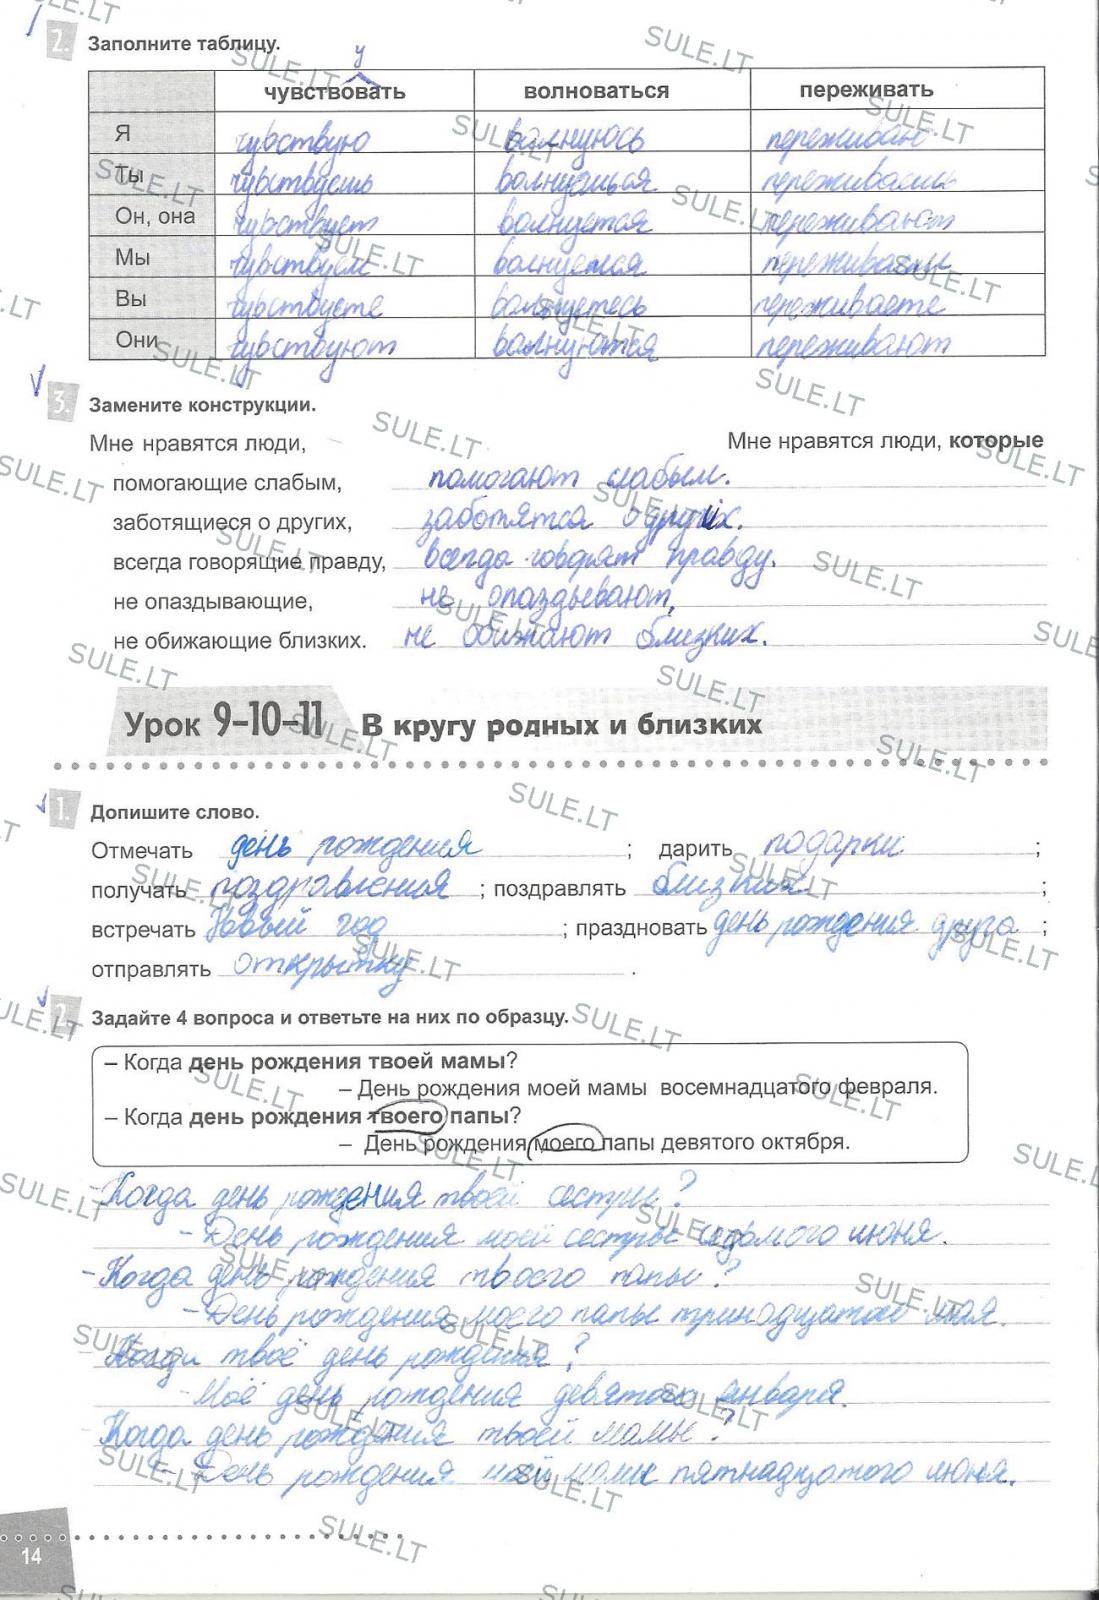 2. Заполните таблицу.
у
чувствовать волноваться переживать
Я чувствую волнуюсь переживаю
Ты чувствуешь волнуешься переживаешь
Он, она чувствует волнуется переживают
Мы чувствуем волнуемся переживаем
Вы чувствуете волнуетесь переживаете
Они чувствуют волнуются переживают
3. Замените конструкции.
Мне нравятся люди, Мне нравятся люди, которые
помогающие слабым, помогают слабым.
заботящиеся о других, заботятся о других.
всегда говорящие правду, всегда говорят правду.
не опаздывающие, не опаздывают,
не обижающие близких. не обижают близких.
Урок 9-10-11 В кругу родных и близких
1. Допишите слово.
Отмечать день рождения ; дарить подарки ;
получать поздравления ; поздравлять близких ;
встречать Новый год ; праздновать день рождения друга ;
отправлять открытку .
2. Задайте 4 вопроса и ответьте на них по образцу.
– Когда день рождения твоей мамы?
– День рождения моей мамы восемнадцатого февраля.
– Когда день рождения твоего папы?
– День рождения моего папы девятого октября.
- Когда день рождения твоей сестры?
- День рождения моей сестры седьмого июня.
- Когда день рождения твоего папы?
- День рождения моего папы тринадцатого мая.
Когда твоё день рождения?
- Моё день рождения девятого января.
Когда день рождения твоей мамы?
- День рождения моей мамы пятнадцатого июня.
14
SULE.LT